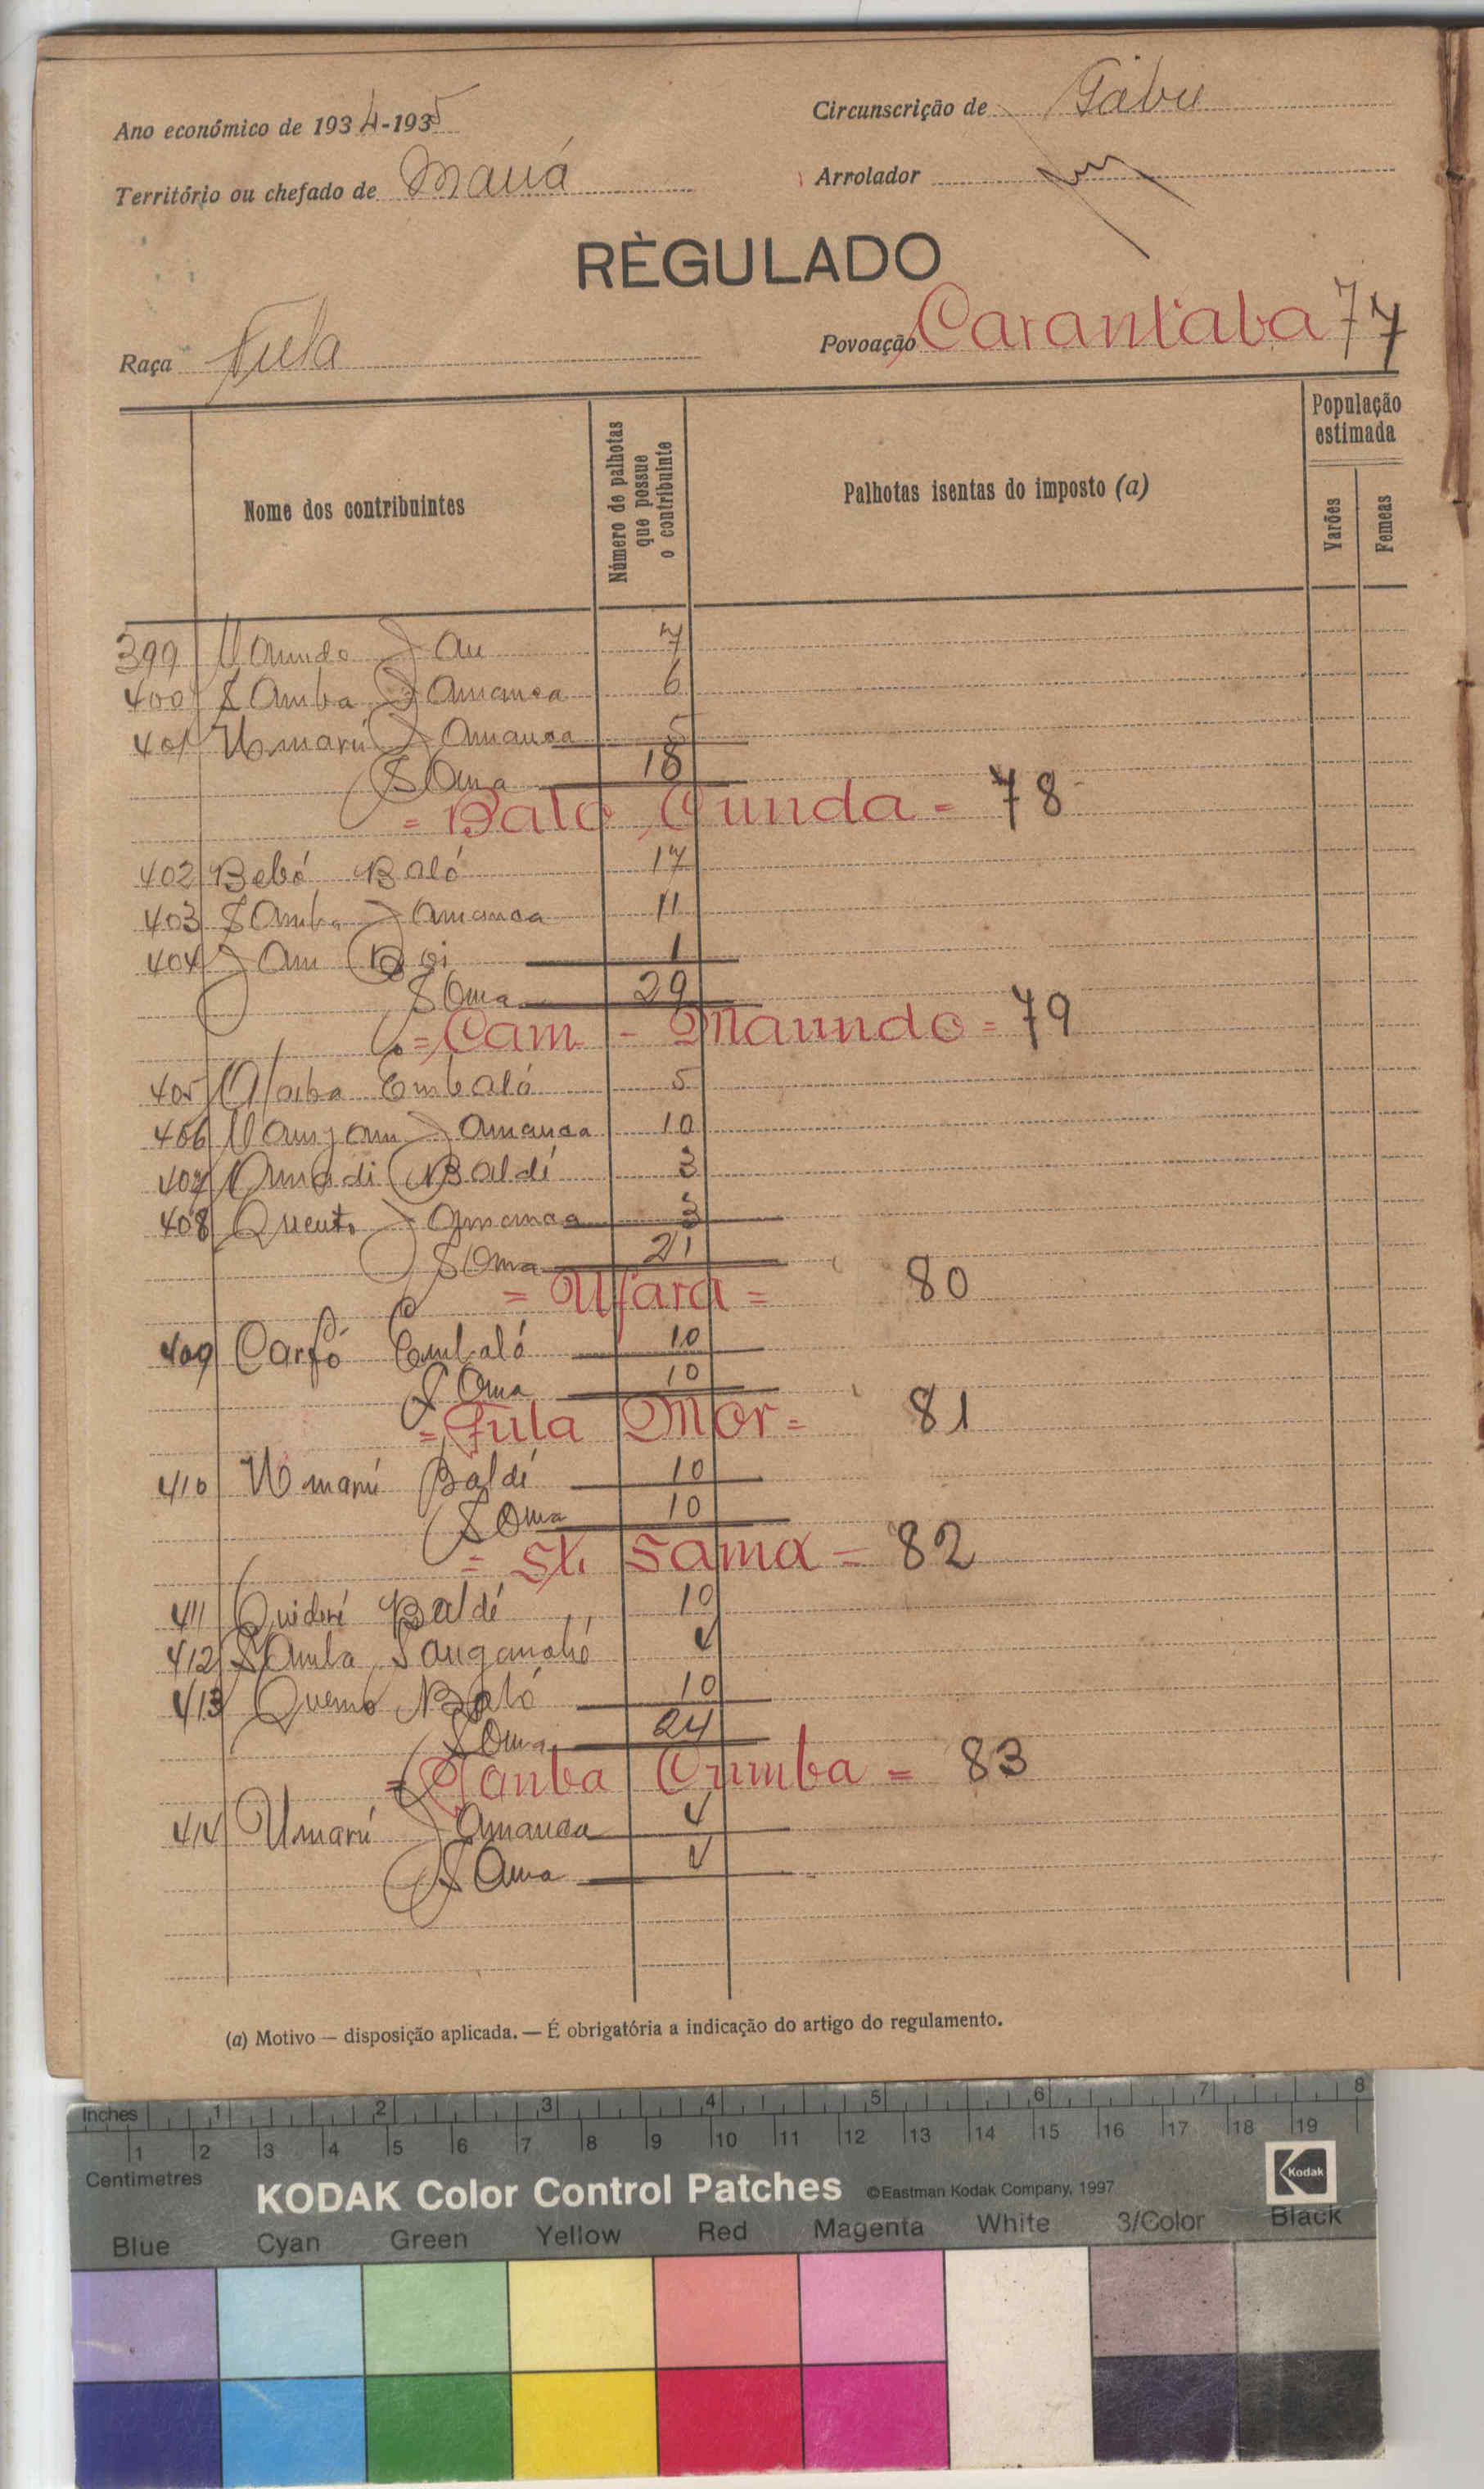 Ano económico de 1934-1935
Circunscrição de Gabú
Território ou chefado de Maná
Arrolador
RÈGULADO
Raça Fula
Povoação Carantaba 77
Nome dos contribuintes
Número de palhotas que possue o contribuinte
Palhotas isentas do imposto (a)
População estimada
Varões
Femeas
399 Jau 7
400 Samba Jamanca 6
401 Umarú Jamanca 5
Soma 18
= Balo Cunda = 78
402 Bebó Baló 17
403 Samba Jamanca 11
404 Jam Boi 1
Soma 29
= Cam - Maundo = 79
405 Embaló 5
406 Jamanca 10
407 Amadi Baldé 3
408 Queuto Jamanca 3
Soma 21
= Ufara = 80
409 Carfó Embaló 10
Soma 10
= Fula Mor = 81
410 Umarú Baldé 10
Soma 10
= Sama = 82
411 Quideré Baldé 10
412 Samba 4
413 Quemó Baló 10
Soma 24
= Cumba = 83
414 Umarú Jamanca 4
Soma 4
(a) Motivo — disposição aplicada. — É obrigatória a indicação do artigo do regulamento.
Inches 1 2 3 4 5 6 7 8
1 2 3 4 5 6 7 8 9 10 11 12 13 14 15 16 17 18 19
Centimetres
KODAK Color Control Patches ©Eastman Kodak Company, 1997
Kodak
Blue Cyan Green Yellow Red Magenta White 3/Color Black